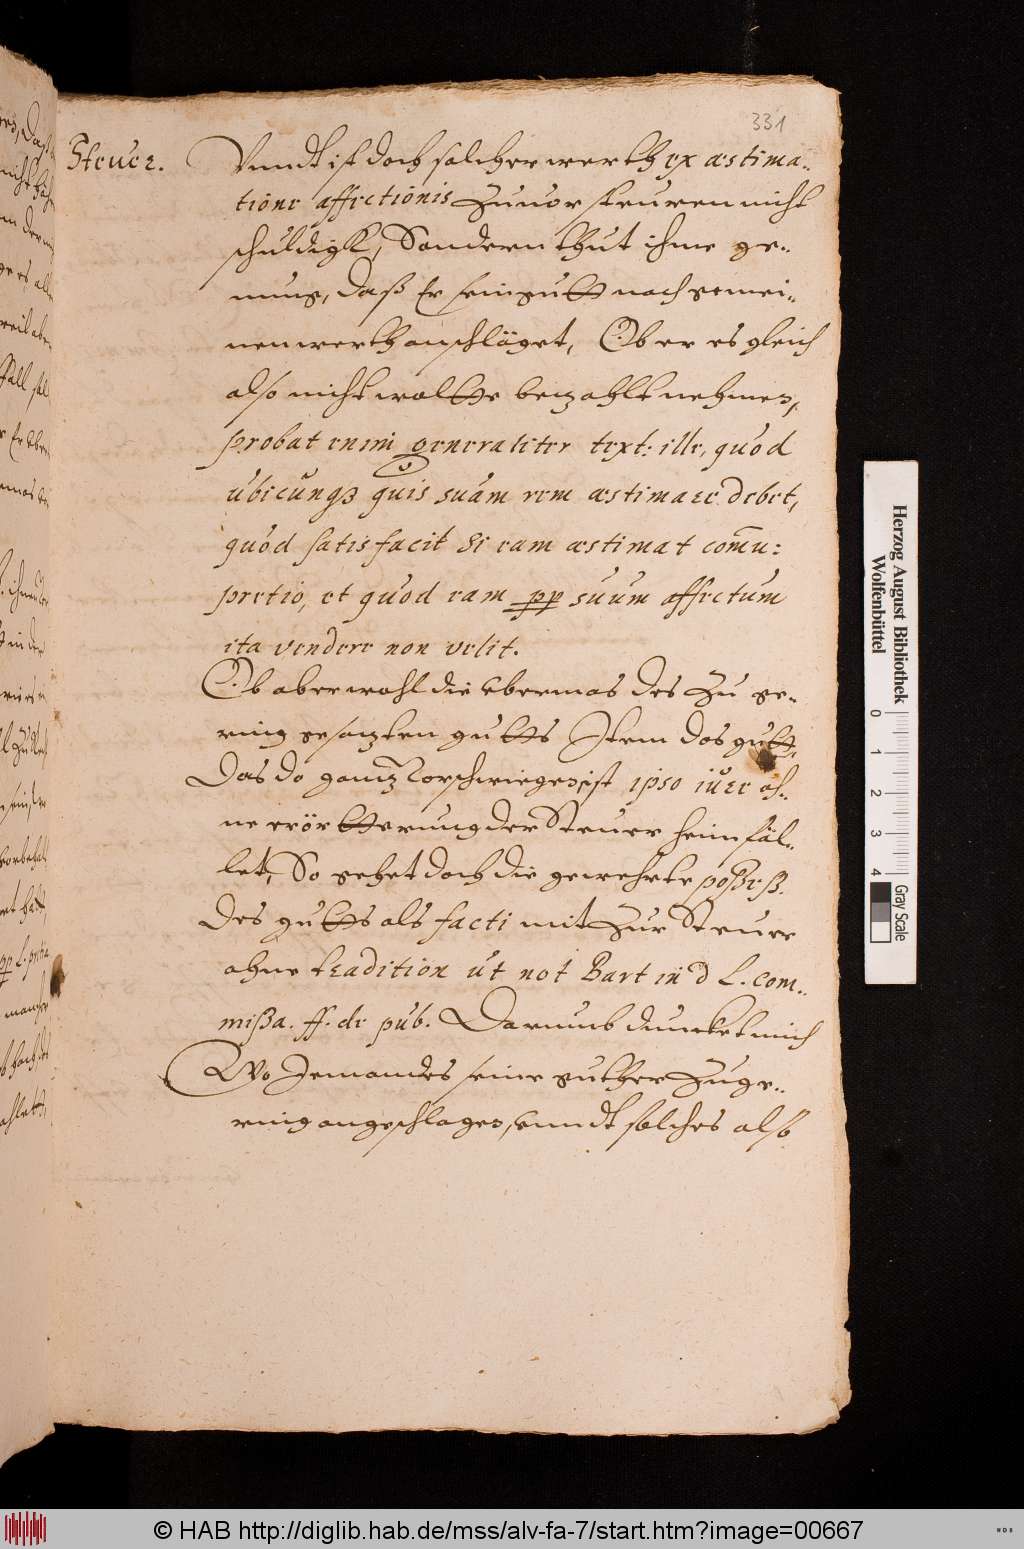 331
Steuer.
Vnndt ist doch solcher werth ex æstima-
tione affectionis Zuuor steuren nicht
schuldigk, Sondern thut ihme ge-
nung, daß Er sein gutt nach gemei-
nen werth anschläget, Ob er es gleich
also nicht wolte bezahlt nehmen,
probat enim generaliter text: ille, quod
ubicunqȝ quis suam rem æstimare debet,
quod satisfacit si eam æstimat com̄u:
pretio, et quod eam pp suum affectum
ita vendere non velit.
Ob aber wohl die vbermas des Zu ge-
ring gesazten gutts Item das gutt,
Das do gantz vorschwiegen, ist ipso iure oh-
ne erörtterung der Steuer heimfäl-
let, So gehet doch die gewehrte poßeß.
des gutts als facti mit Zur Steuer
ohne tradition ut not Bart in d L. com-
mißa. ff. de pub. Darumb duncket mich
Wo Jemandes seine gutter Zu ge-
ring angeschlagen, vnndt solches also
Herzog August Bibliothek
Wolfenbüttel
0 1 2 3 4
Gray Scale
© HAB http://diglib.hab.de/mss/alv-fa-7/start.htm?image=00667